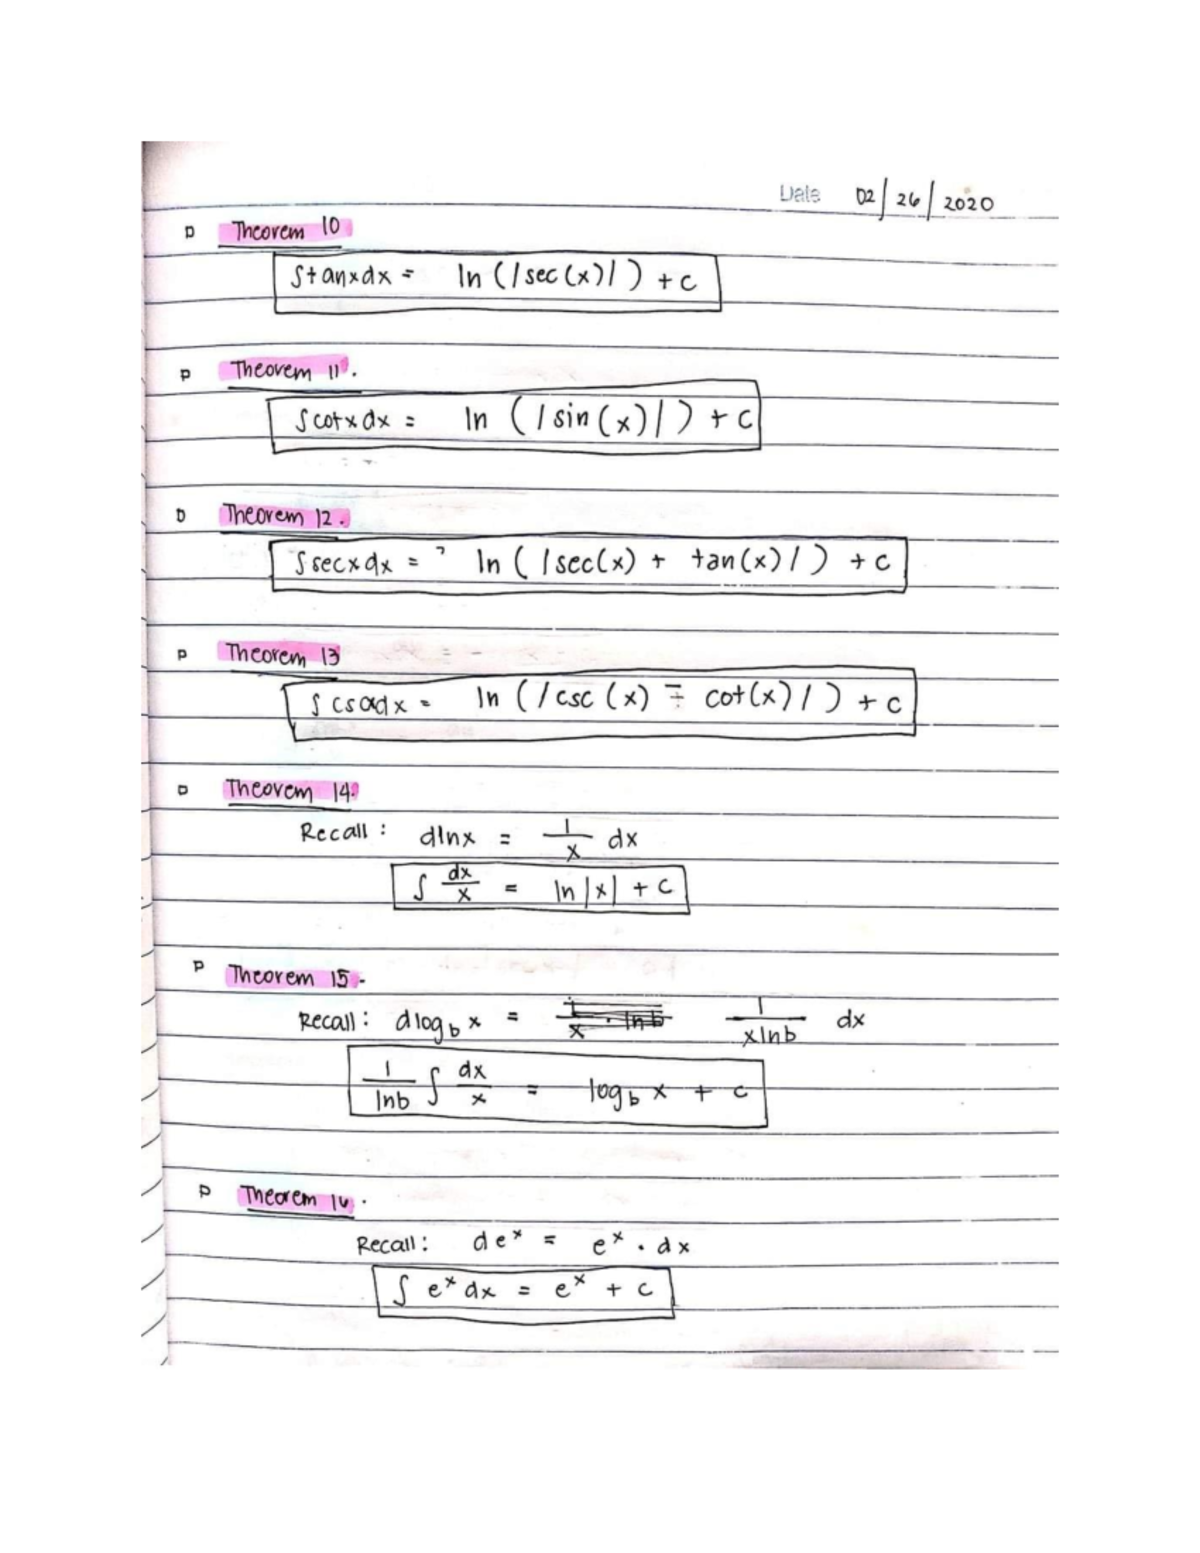 Date 02/26/2020
Theorem 10
∫tanxdx = ln (|sec(x)|) + c
Theorem 11.
∫cotxdx = ln (|sin(x)|) + c
Theorem 12.
∫secxdx = ln (|sec(x) + tan(x)|) + c
Theorem 13
∫cscxdx = ln (|csc(x) - cot(x)|) + c
Theorem 14.
Recall: dlnx = 1/x dx
∫ dx/x = ln|x| + c
Theorem 15.
Recall: dlog_b x = 1/xlnb dx
1/lnb ∫ dx/x = log_b x + c
Theorem 16.
Recall: de^x = e^x . dx
∫ e^x dx = e^x + c